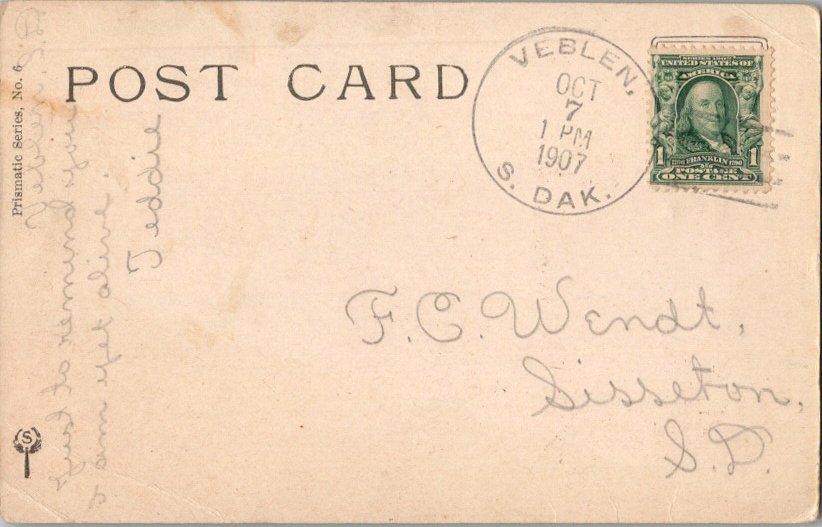 POST CARD
Prismatic Series, No. 6
VEBLEN,
OCT
7
1 PM
1907
S. DAK.
SERIES 1902
UNITED STATES OF
AMERICA
1 1
FRANKLIN
POSTAGE
ONE CENT
Veblen S.D.
Just to remind you
I am yet alive.
Teddie
F. C. Wendt,
Sisseton,
S.D.
S